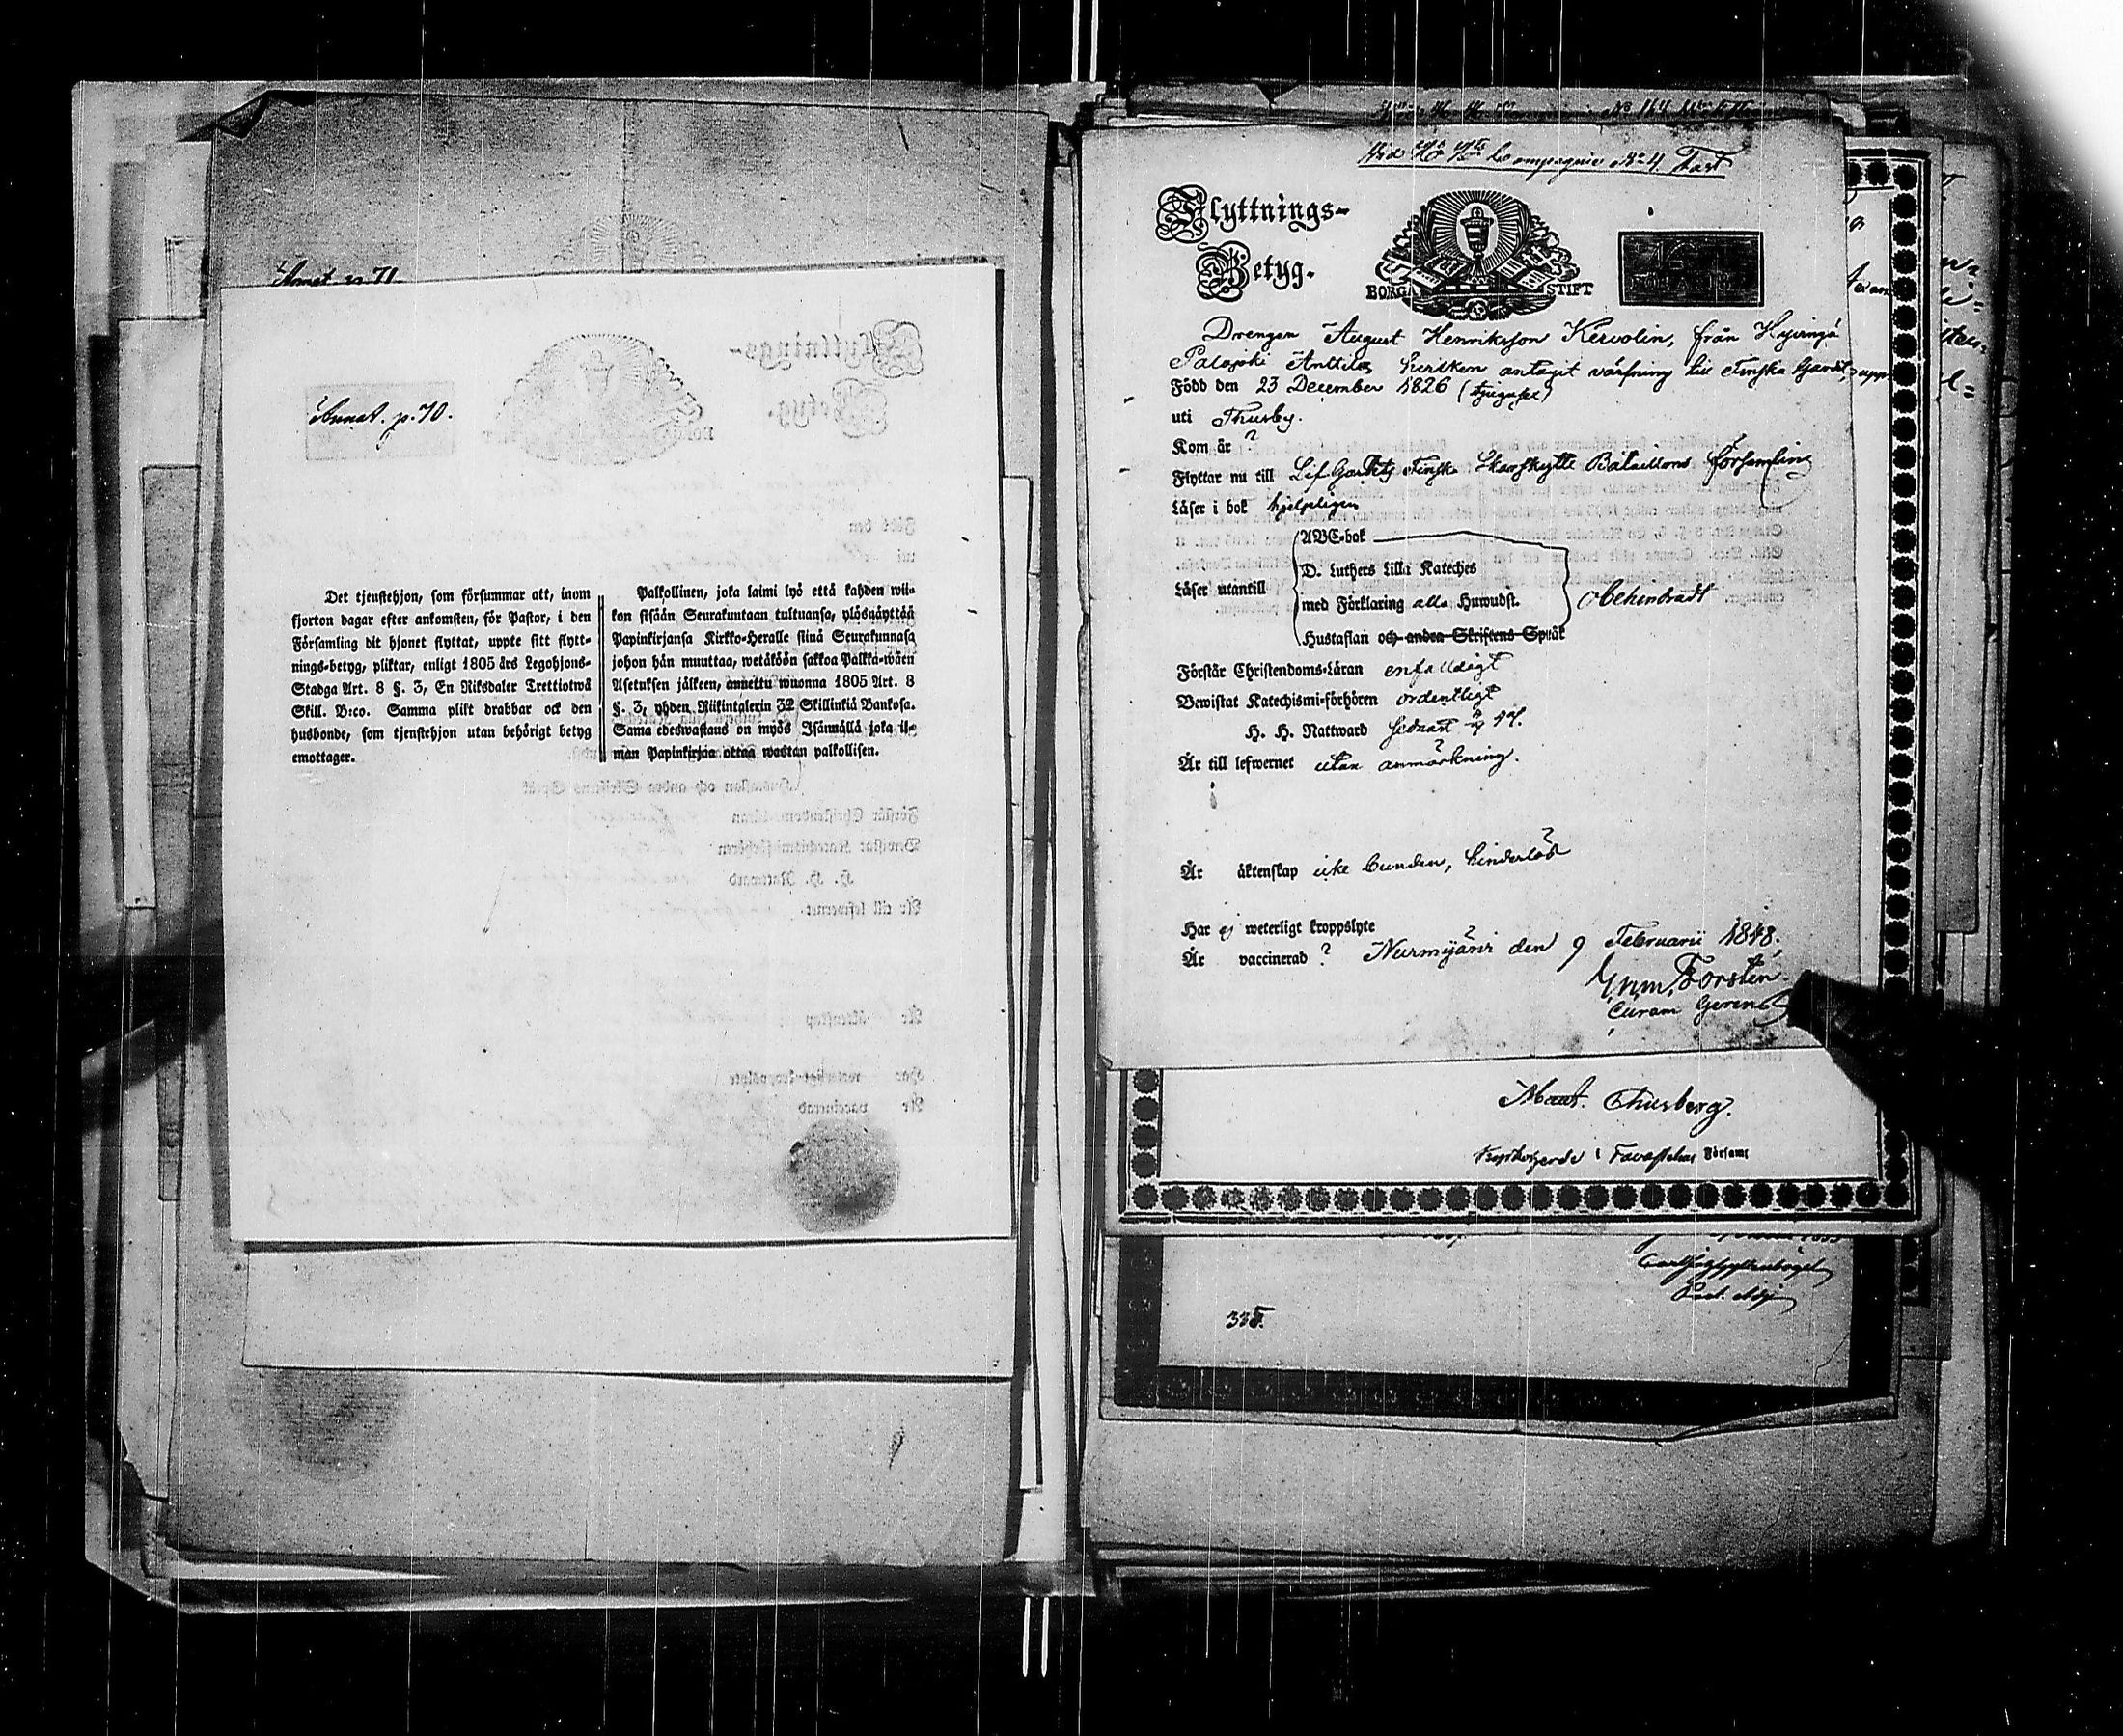 Annot. p. 71.
Annat. p. 70.
Det tjenstehjon, som försummar att, inom
fjorton dagar efter ankomsten, för Pastor, i den
Församling dit hjonet flyttat, uppte sitt flytt-
nings-betyg, pliktar, enligt 1805 års Legohjons-
Stadga Art. 8 §. 3, En Riksdaler Trettiotwå
Skill. B:co. Samma plikt drabbar ock den
husbonde, som tjenstehjon utan behörigt betyg
emottager.
Palkollinen, joka laimi lyö että kahden wii-
kon sisään Seurakuntaan tultuansa, ylösnäyttää
Papinkirjansa Kirkko-Heralle siinä Seurakunnasa
johon hän muuttaa, wetäköön sakkoa Palkka-wäen
Asetuksen jälkeen, annettu wuonna 1805 Art. 8
§. 3, yhden Riikintalerin 32 Skillinkiä Bankosa.
Sama edeswastaus on myös Isännällä joka il-
man Papinkirjaa ottaa wastan palkollisen.
Compagnie No 4. Fast
Flyttnings-
Betyg.
BORGÅ STIFT
Drengen August Henriksson Kervolin, från Hyvingä
Palojoki Anttila, hvilken antagit värfning till Finska Gardet,
Född den 23 December 1826 (tjugusex)
uti Thusby.
Kom år ?
Flyttar nu till Lif Gardets Finska Skarpskytte Bataillons Församling
Läser i bok hjelpligen
ABC-bok
D. Luthers Lilla Kateches
Läser utantill
med Förklaring alla Huwudst.
obehindradt
Hustaflan och andra Skriftens Språk
Förstår Christendoms-Läran enfalldigt
Bewistat Katechismi-förhören ordentligt
H. H. Nattward sednast
Är till lefwernet utan anmärkning.
Är äktenskap icke bunden, hinderlös
Har ej weterligt kroppslyte
Är vaccinerad ? Nurmijärvi den 9 Februarii 1848.
Forstén.
Curam Gerens
Thusberg.
i Tavastehus Församl
335.